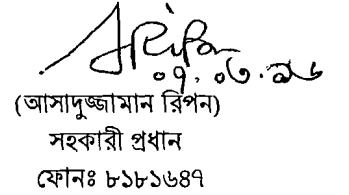 ০৭.০৩.১৬
(আসাদুজ্জামান রিপন)
সহকারী প্রধান
ফোনঃ ৮১৮১৬৪৭